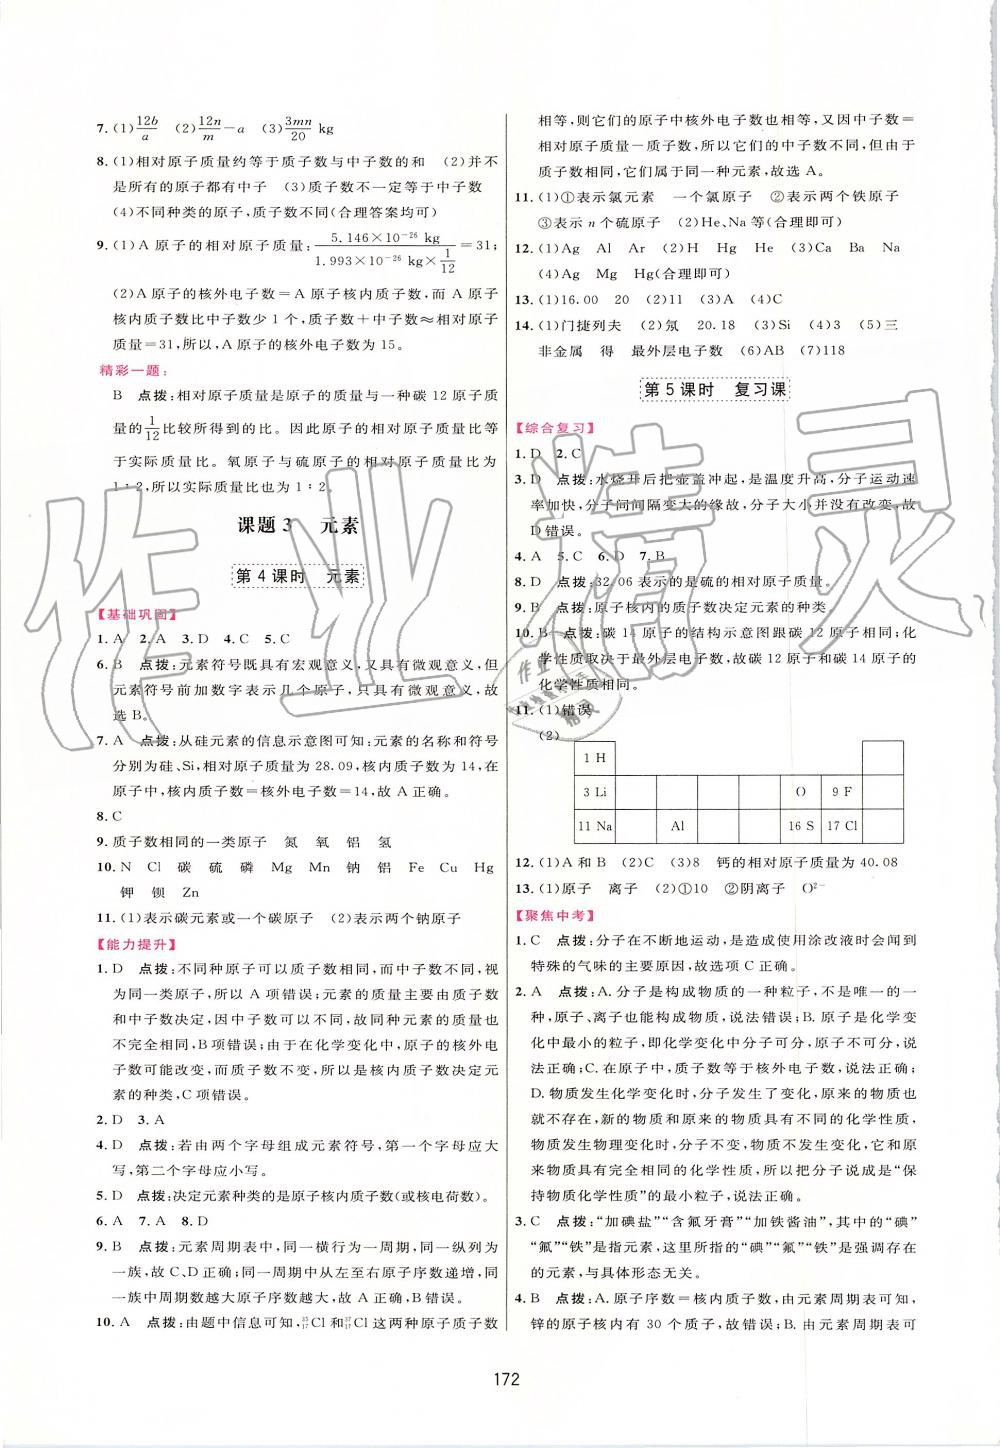 7. (1)12b/a (2)12n/m－a (3)3mn/20 kg
8. (1)相对原子质量约等于质子数与中子数的和 (2)并不
是所有的原子都有中子 (3)质子数不一定等于中子数
(4)不同种类的原子,质子数不同(合理答案均可)
9. (1)A 原子的相对原子质量: 5.146×10⁻²⁶ kg/(1.993×10⁻²⁶ kg×1/12)=31;
(2)A 原子的核外电子数＝A 原子核内质子数,而 A 原子
核内质子数比中子数少 1 个,质子数＋中子数≈相对原子
质量=31,所以,A 原子的核外电子数为 15。
精彩一题:
B 点拨:相对原子质量是原子的质量与一种碳 12 原子质
量的1/12比较所得到的比。因此原子的相对原子质量比等
于实际质量比。氧原子与硫原子的相对原子质量比为
1∶2,所以实际质量比也为 1∶2。
课题 3 元素
第 4 课时 元素
【基础巩固】
1. A 2. A 3. D 4. C 5. C
6. B 点拨:元素符号既具有宏观意义,又具有微观意义,但
元素符号前加数字表示几个原子,只具有微观意义,故
选 B。
7. A 点拨:从硅元素的信息示意图可知:元素的名称和符号
分别为硅、Si,相对原子质量为 28.09,核内质子数为 14,在
原子中,核内质子数＝核外电子数=14,故 A 正确。
8. C
9. 质子数相同的一类原子 氮 氧 铝 氢
10. N Cl 碳 硫 磷 Mg Mn 钠 铝 Fe Cu Hg
钾 钡 Zn
11. (1)表示碳元素或一个碳原子 (2)表示两个钠原子
【能力提升】
1. D 点拨:不同种原子可以质子数相同,而中子数不同,视
为同一类原子,所以 A 项错误;元素的质量主要由质子数
和中子数决定,因中子数可以不同,故同种元素的质量也
不完全相同,B项错误;由于在化学变化中,原子的核外电
子数可能改变,而质子数不变,所以是核内质子数决定元
素的种类,C 项错误。
2. D 3. A
4. D 点拨:若由两个字母组成元素符号,第一个字母应大
写,第二个字母应小写。
5. D 点拨:决定元素种类的是原子核内质子数(或核电荷数)。
6. A 7. A 8. D
9. B 点拨:元素周期表中,同一横行为一周期,同一纵列为
一族,故 C、D 正确;同一周期中从左至右原子序数递增,同
一族中周期数越大原子序数越大,故 A 正确,B错误。
10. A 点拨:由题中信息可知,³⁵₁₇Cl和³⁷₁₇Cl 这两种原子质子数
相等,则它们的原子中核外电子数也相等,又因中子数＝
相对原子质量－质子数,所以它们的中子数不同,但由于
质子数相同,它们属于同一种元素,故选 A。
11. (1)①表示氯元素 一个氯原子 ②表示两个铁原子
③表示 n 个硫原子 (2)He、Na 等(合理即可)
12. (1)Ag Al Ar (2)H Hg He (3)Ca Ba Na
(4)Ag Mg Hg(合理即可)
13. (1)16.00 20 (2)11 (3)A (4)C
14. (1)门捷列夫 (2)氖 20.18 (3)Si (4)3 (5)三
非金属 得 最外层电子数 (6)AB (7)118
第 5 课时 复习课
【综合复习】
1. D 2. C
3. D 点拨:水烧开后把壶盖冲起,是温度升高,分子运动速
率加快,分子间间隔变大的缘故,分子大小并没有改变。故
D 错误。
4. A 5. C 6. D 7. B
8. D 点拨:32.06 表示的是硫的相对原子质量。
9. B 点拨:原子核内的质子数决定元素的种类。
10. B 点拨:碳 14 原子的结构示意图跟碳 12 原子相同;化
学性质取决于最外层电子数,故碳 12 原子和碳 14 原子的
化学性质相同。
11. (1)错误
(2)
1 H
3 Li O 9 F
11 Na Al 16 S 17 Cl
12. (1)A 和 B (2)C (3)8 钙的相对原子质量为 40.08
13. (1)原子 离子 (2)①10 ②阴离子 O²⁻
【聚焦中考】
1. C 点拨:分子在不断地运动,是造成使用涂改液时会闻到
特殊的气味的主要原因,故选项 C 正确。
2. A 点拨:A. 分子是构成物质的一种粒子,不是唯一的一
种,原子、离子也能构成物质,说法错误;B. 原子是化学变
化中最小的粒子,即化学变化中分子可分,原子不可分,说
法正确;C. 在原子中,质子数等于核外电子数,说法正确;
D. 物质发生化学变化时,分子发生了变化,原来的物质也
就不存在,新的物质和原来的物质具有不同的化学性质,
物质发生物理变化时,分子不变,物质不发生变化,它和原
来物质具有完全相同的化学性质,所以把分子说成是“保
持物质化学性质”的最小粒子,说法正确。
3. C 点拨:“加碘盐”“含氟牙膏”“加铁酱油”,其中的“碘”
“氟”“铁”是指元素,这里所指的“碘”“氟”“铁”是强调存在
的元素,与具体形态无关。
4. B 点拨:A. 原子序数＝核内质子数,由元素周期表可知,
锌的原子核内有 30 个质子,故正确;B. 由元素周期表可
172
作业精灵
作业
精灵